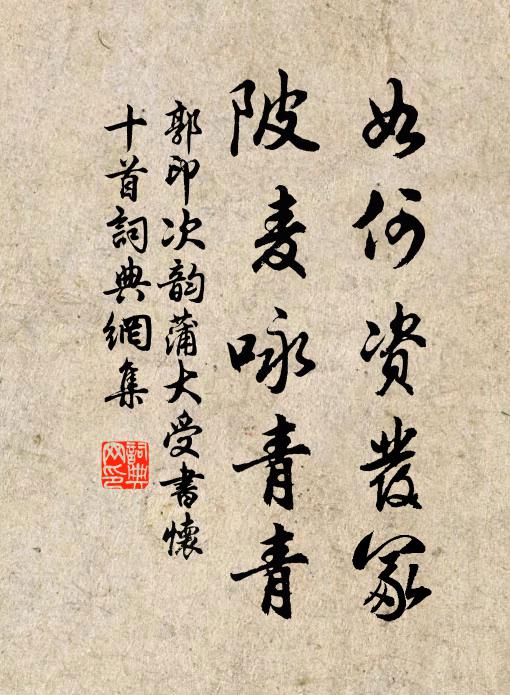 如何资发冢
陂麦咏青青
郭印次韵蒲大受书怀
十首詞典網集
詞典网印